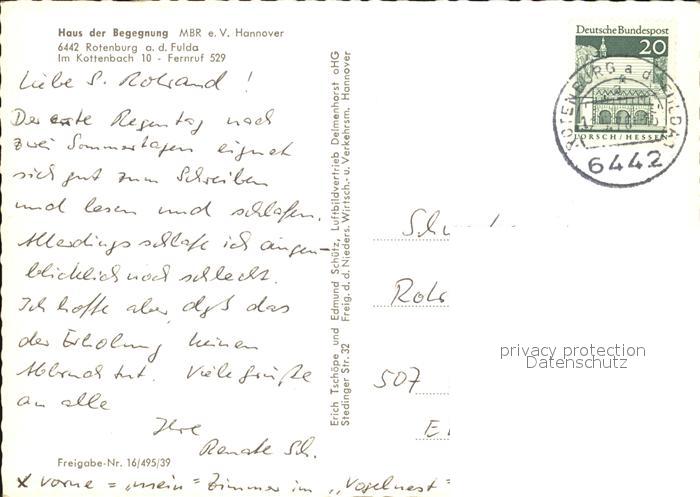 Haus der Begegnung MBR e. V. Hannover
6442 Rotenburg a. d. Fulda
Im Kottenbach 10 - Fernruf 529
Liebe S. Rotraud !
Der erste Regentag nach
zwei Sommertagen eignet
sich gut zum Schreiben
und lesen und schlafen.
Allerdings schlafe ich augen-
blicklich noch schlecht.
Ich hoffe aber, daß das
der Erholung keinen
Abbruch tut. Viele Grüße
an alle
Ihre
Renate Sch.
Freigabe-Nr. 16/495/39
x vorne = "mein" Zimmer im "Vogelnest"
Erich Tschöpe und Edmund Schütz, Luftbildvertrieb Delmenhorst oHG
Stedinger Str. 32 Freig. d. d. Nieders. Wirtsch.- u. Verkehrsm. Hannover
Deutsche Bundespost
20
LORSCH / HESSEN
ROTENBURG a d FULDA 1
6442
Schw
Rotr
507
privacy protection
Datenschutz